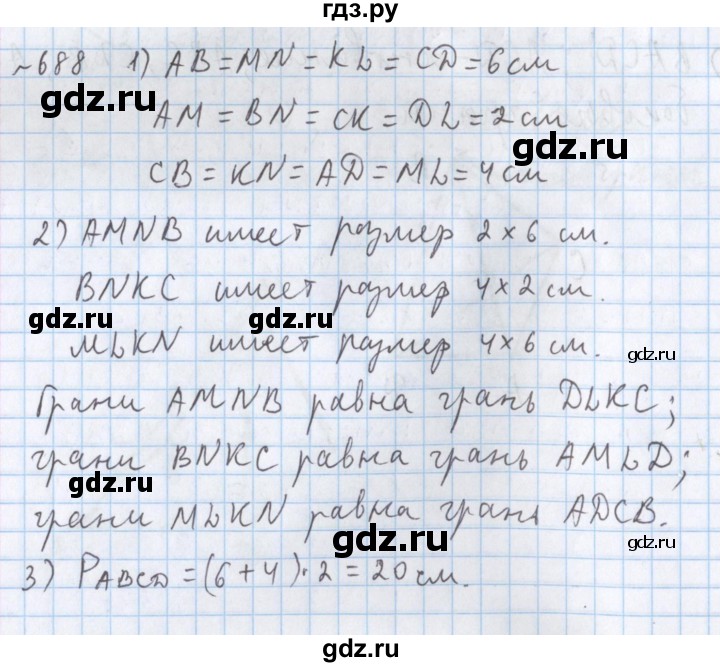 гдз.ру
~688 1) AB = MN = KL = CD = 6 см
AM = BN = CK = DL = 2 см
gdz.ru
CB = KN = AD = ML = 4 см
2) AMNB имеет размер 2 × 6 см.
BNKC имеет размер 4 × 2 см.
gdz.ru gdz.ru
MLKN имеет размер 4 × 6 см.
gdz.ru
Грани AMNB равна грань DLKC;
грани BNKC равна грань AMLD;
gdz.ru
грани MLKN равна грань ADCB.
gdz.ru
3) PABCD = (6 + 4) · 2 = 20 см.
gdz.ru